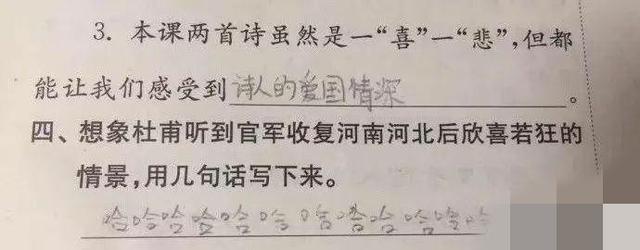 3. 本课两首诗虽然是一“喜”一“悲”,但都
能让我们感受到诗人的爱国情深。
四、想象杜甫听到官军收复河南河北后欣喜若狂的
情景,用几句话写下来。
哈哈哈哈哈哈哈哈哈哈哈哈